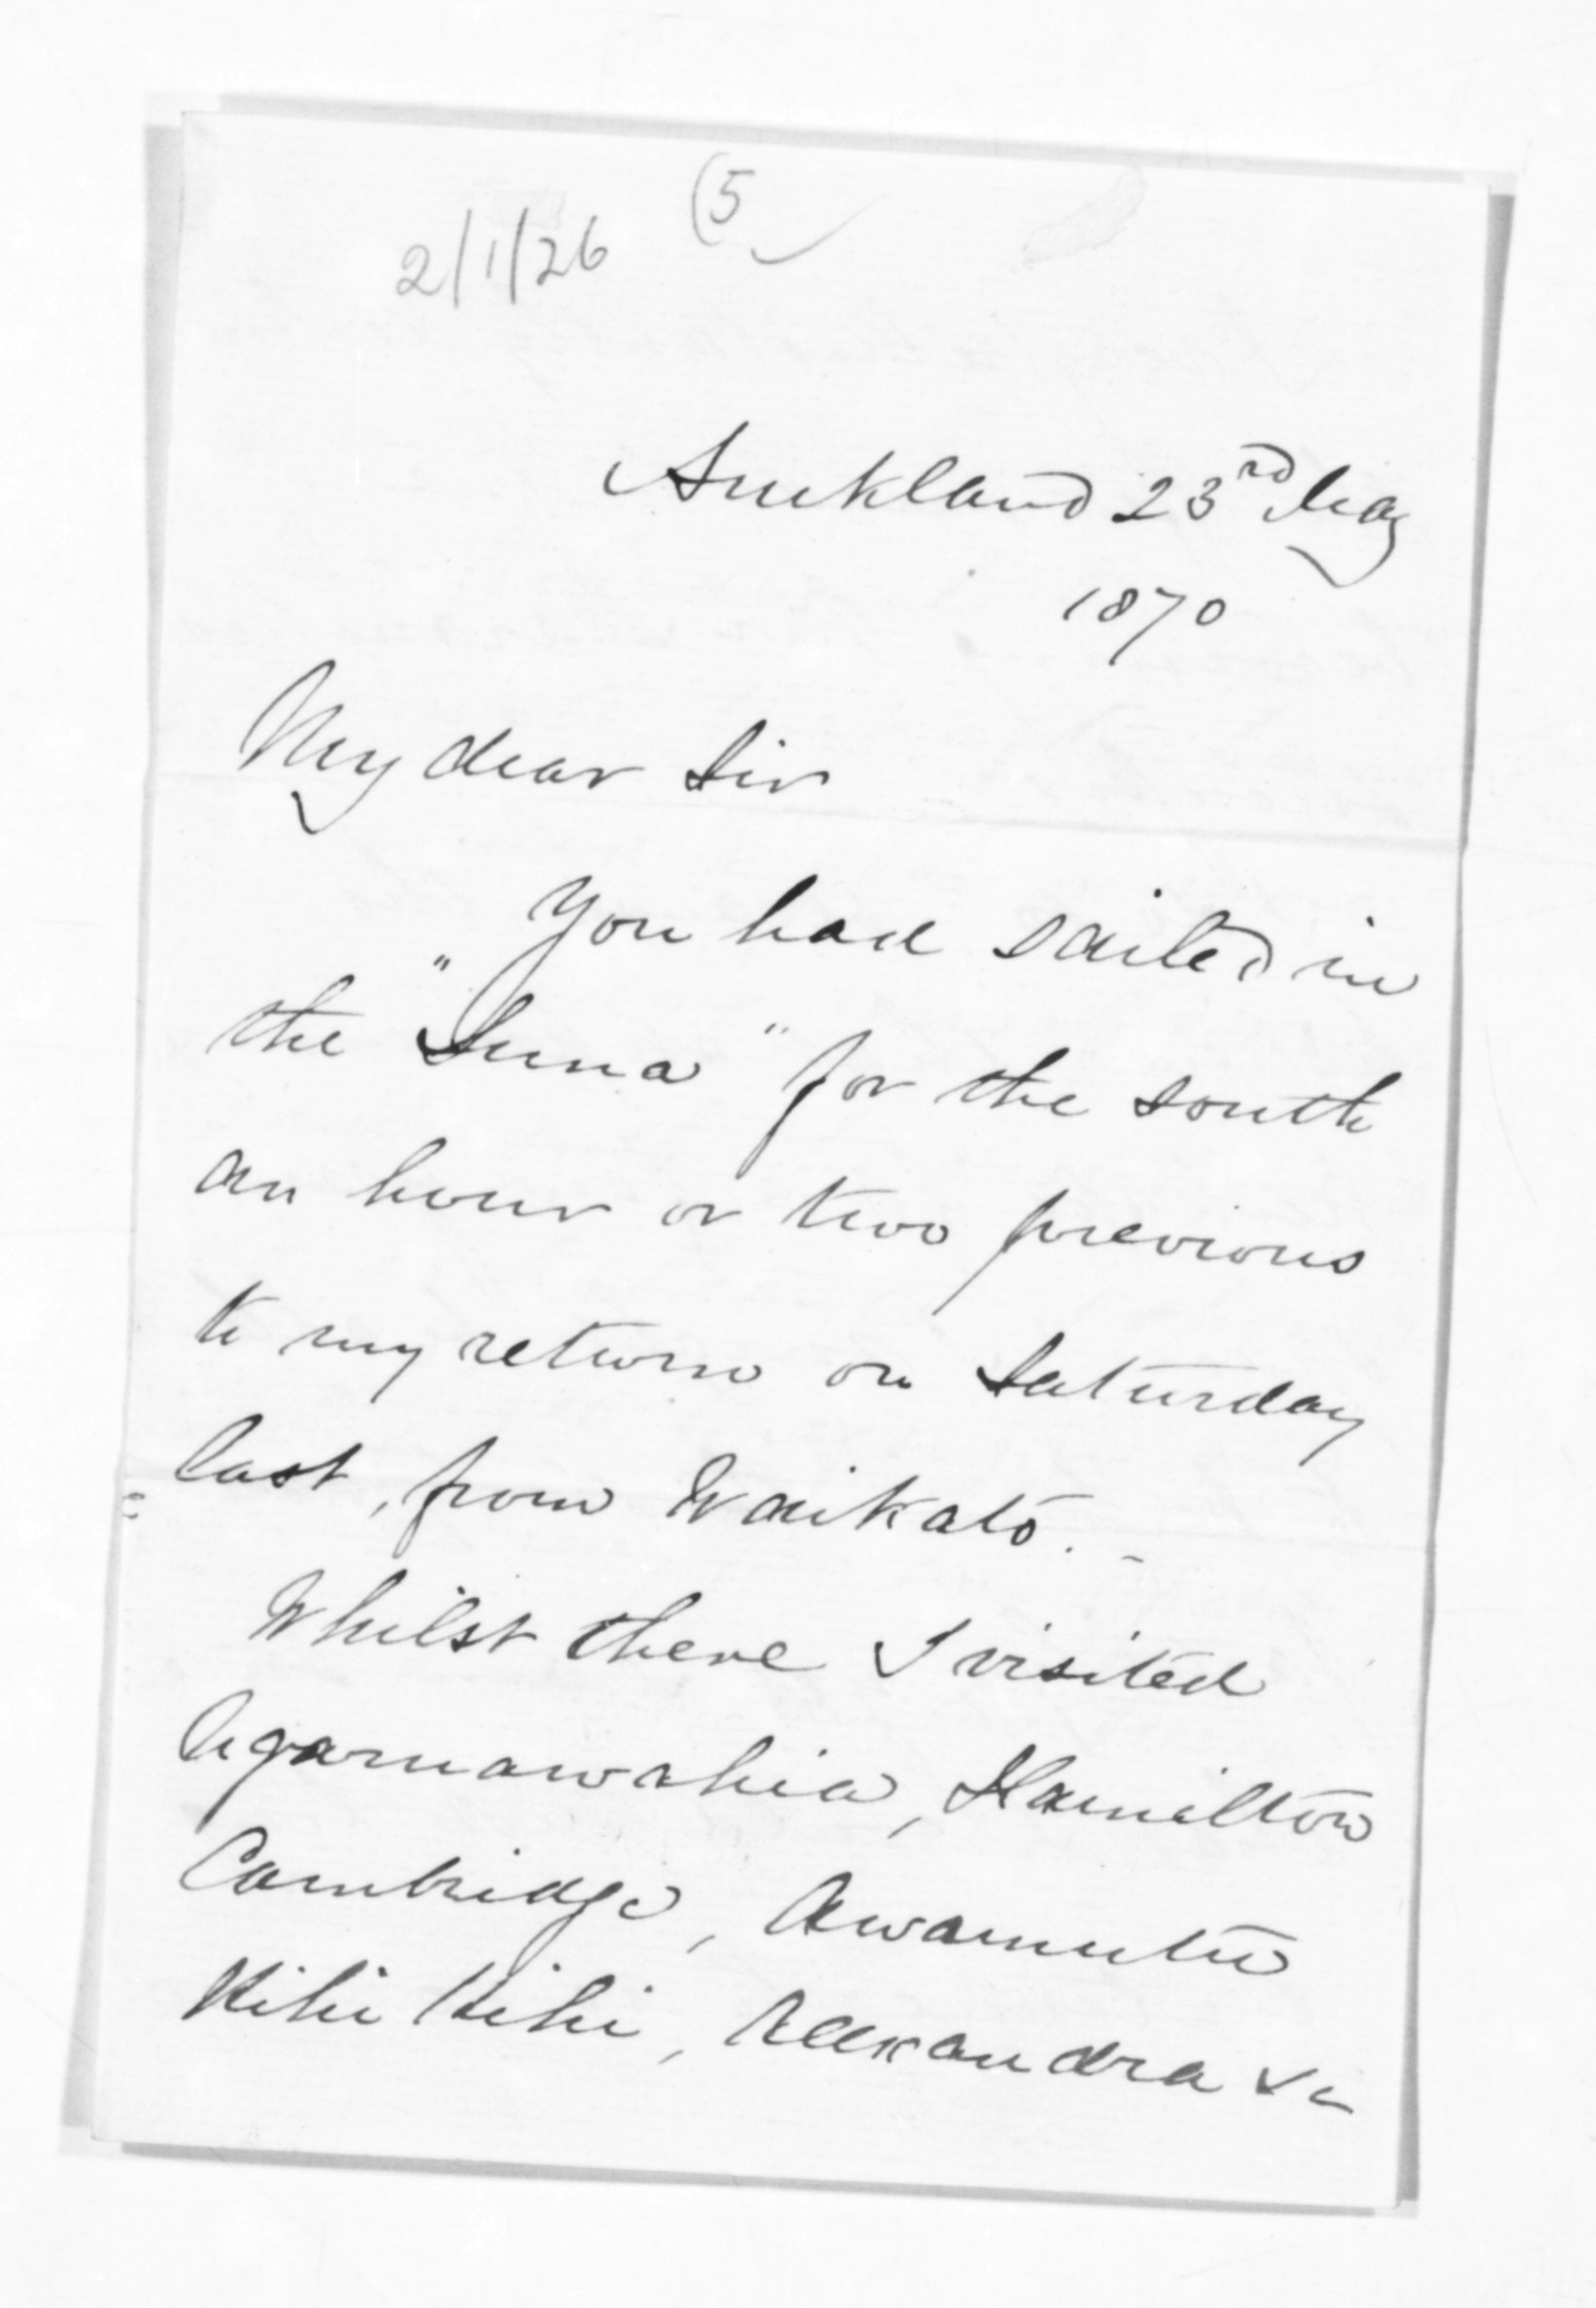 2/1/26 (5
Auckland 23rd May
1870
My dear Sir
You had sailed in
the "Luna" for the south
an hour or two previous
to my return on Saturday
last, from Waikato. -
Whilst there I visited
Ngaruawahia, Hamilton
Cambridge, Awamutu
Kihi Kihi, Alexandra &c